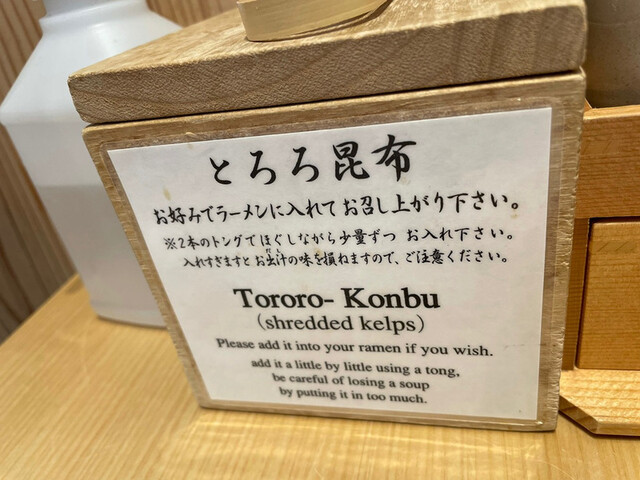 とろろ昆布
お好みでラーメンに入れてお召し上がり下さい。
※2本のトングでほぐしながら少量ずつ お入れ下さい。
入れすぎますとお出汁の味を損ねますので、ご注意ください。
Tororo- Konbu
(shredded kelps)
Please add it into your ramen if you wish.
add it a little by little using a tong,
be careful of losing a soup
by putting it in too much.